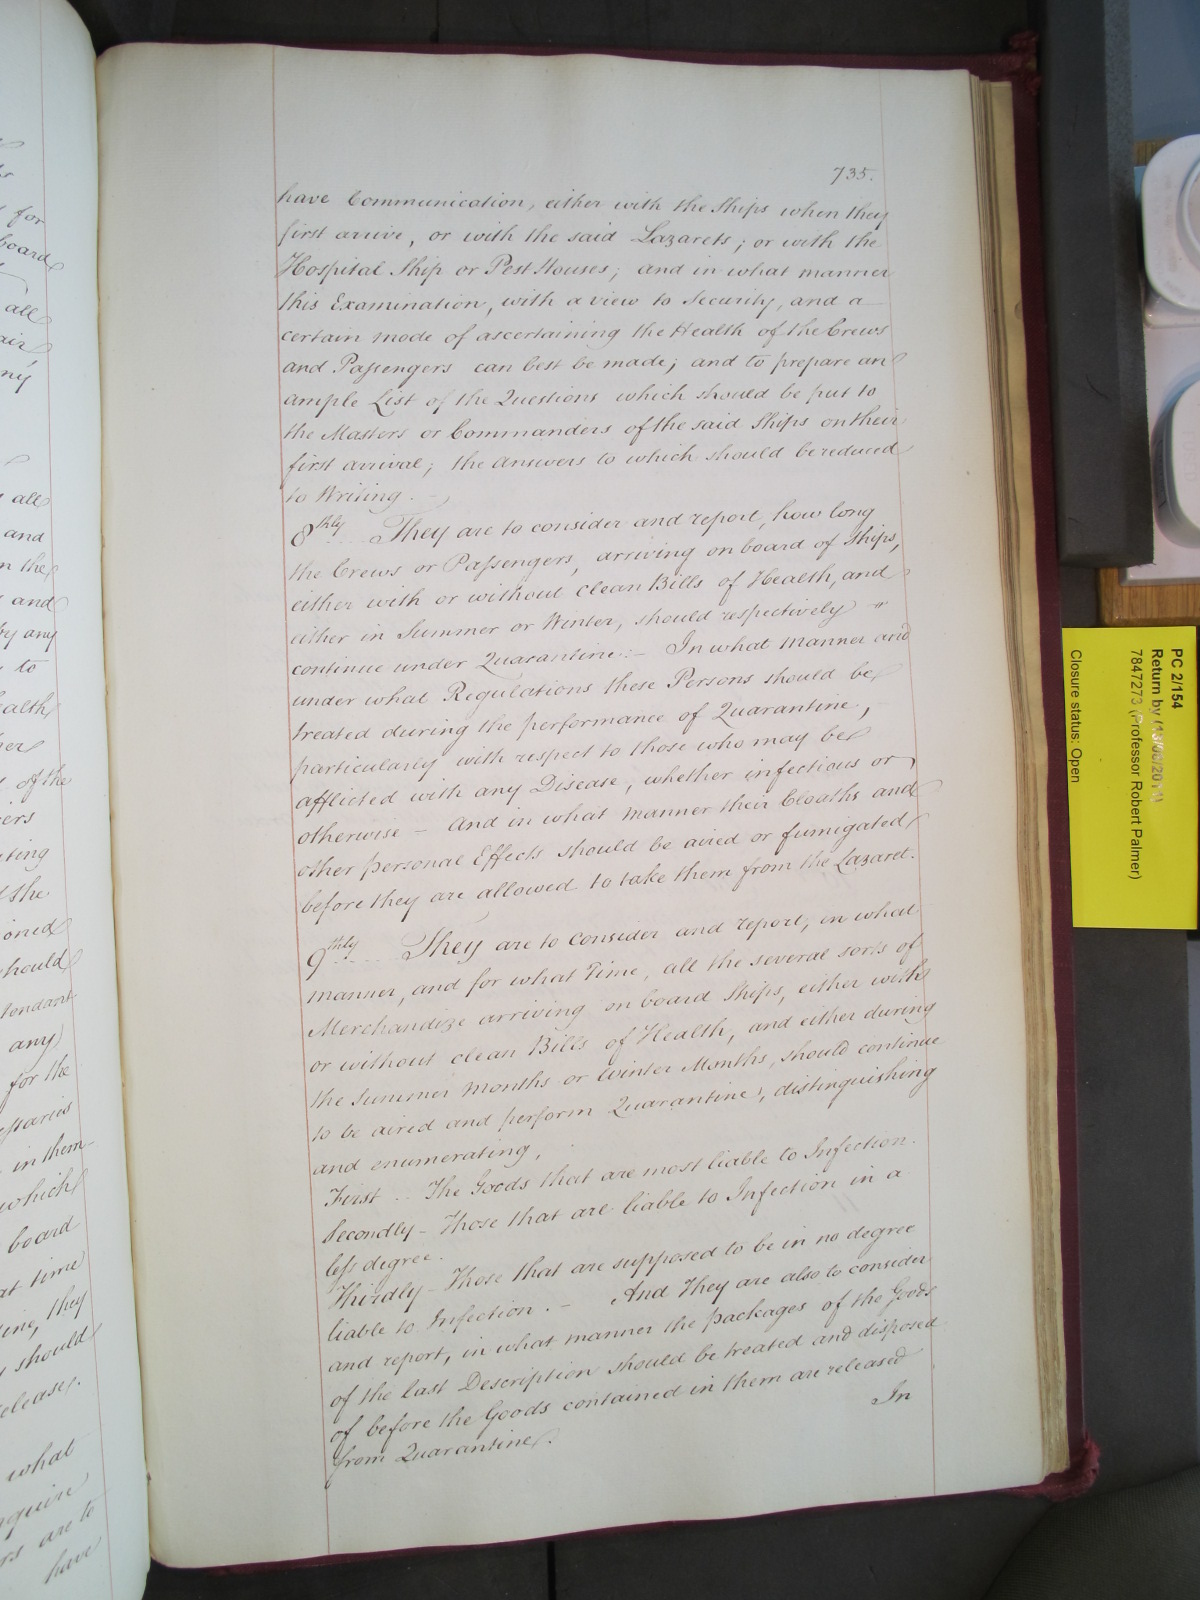 735.
have Communication, either with the Ships when they
first arrive, or with the said Lazarets; or with the
Hospital Ship or Pest Houses; and in what manner
this Examination, with a view to Security, and a
certain mode of ascertaining the Health of the Crews
and Passengers can best be made; and to prepare an
ample List of the Questions which should be put to
the Masters or Commanders of the said Ships on their
first arrival; the answers to which should be reduced
to Writing. -
8thly They are to consider and report, how long
the Crews or Passengers, arriving on board of Ships,
either with or without clean Bills of Health, and
either in Summer or Winter, should respectively
continue under Quarantine: - In what manner and
under what Regulations these Persons should be
treated during the performance of Quarantine, -
particularly with respect to those who may be
afflicted with any Disease, whether infectious or
otherwise - and in what manner their Cloaths and
other personal Effects should be aired or fumigated
before they are allowed to take them from the Lazaret.
9thly They are to consider and report, in what
manner, and for what Time, all the several sorts of
Merchandize arriving on board Ships, either with
or without clean Bills of Health, and either during
the Summer months or Winter Months, should continue
to be aired and perform Quarantine, distinguishing
and enumerating,
First .. The Goods that are most liable to Infection.
Secondly - Those that are liable to Infection in a
less degree.
Thirdly - Those that are supposed to be in no degree
liable to Infection. - And They are also to consider
and report, in what manner the packages of the Goods
of the last Description should be treated and disposed
of before the Goods contained in them are released
from Quarantine.
In
for
board
all
air
ny
all
and
n the
and
by any
to
ealth
her
of the
ers
ting
the
ioned
hould
tendant
any
for the
essaries
in them
which
board
at time
ine, they
should
elease.
what
nquire
rs are to
have
PC 2/154
Return by (13/08/2011)
7847273 (Professor Robert Palmer)
Closure status: Open